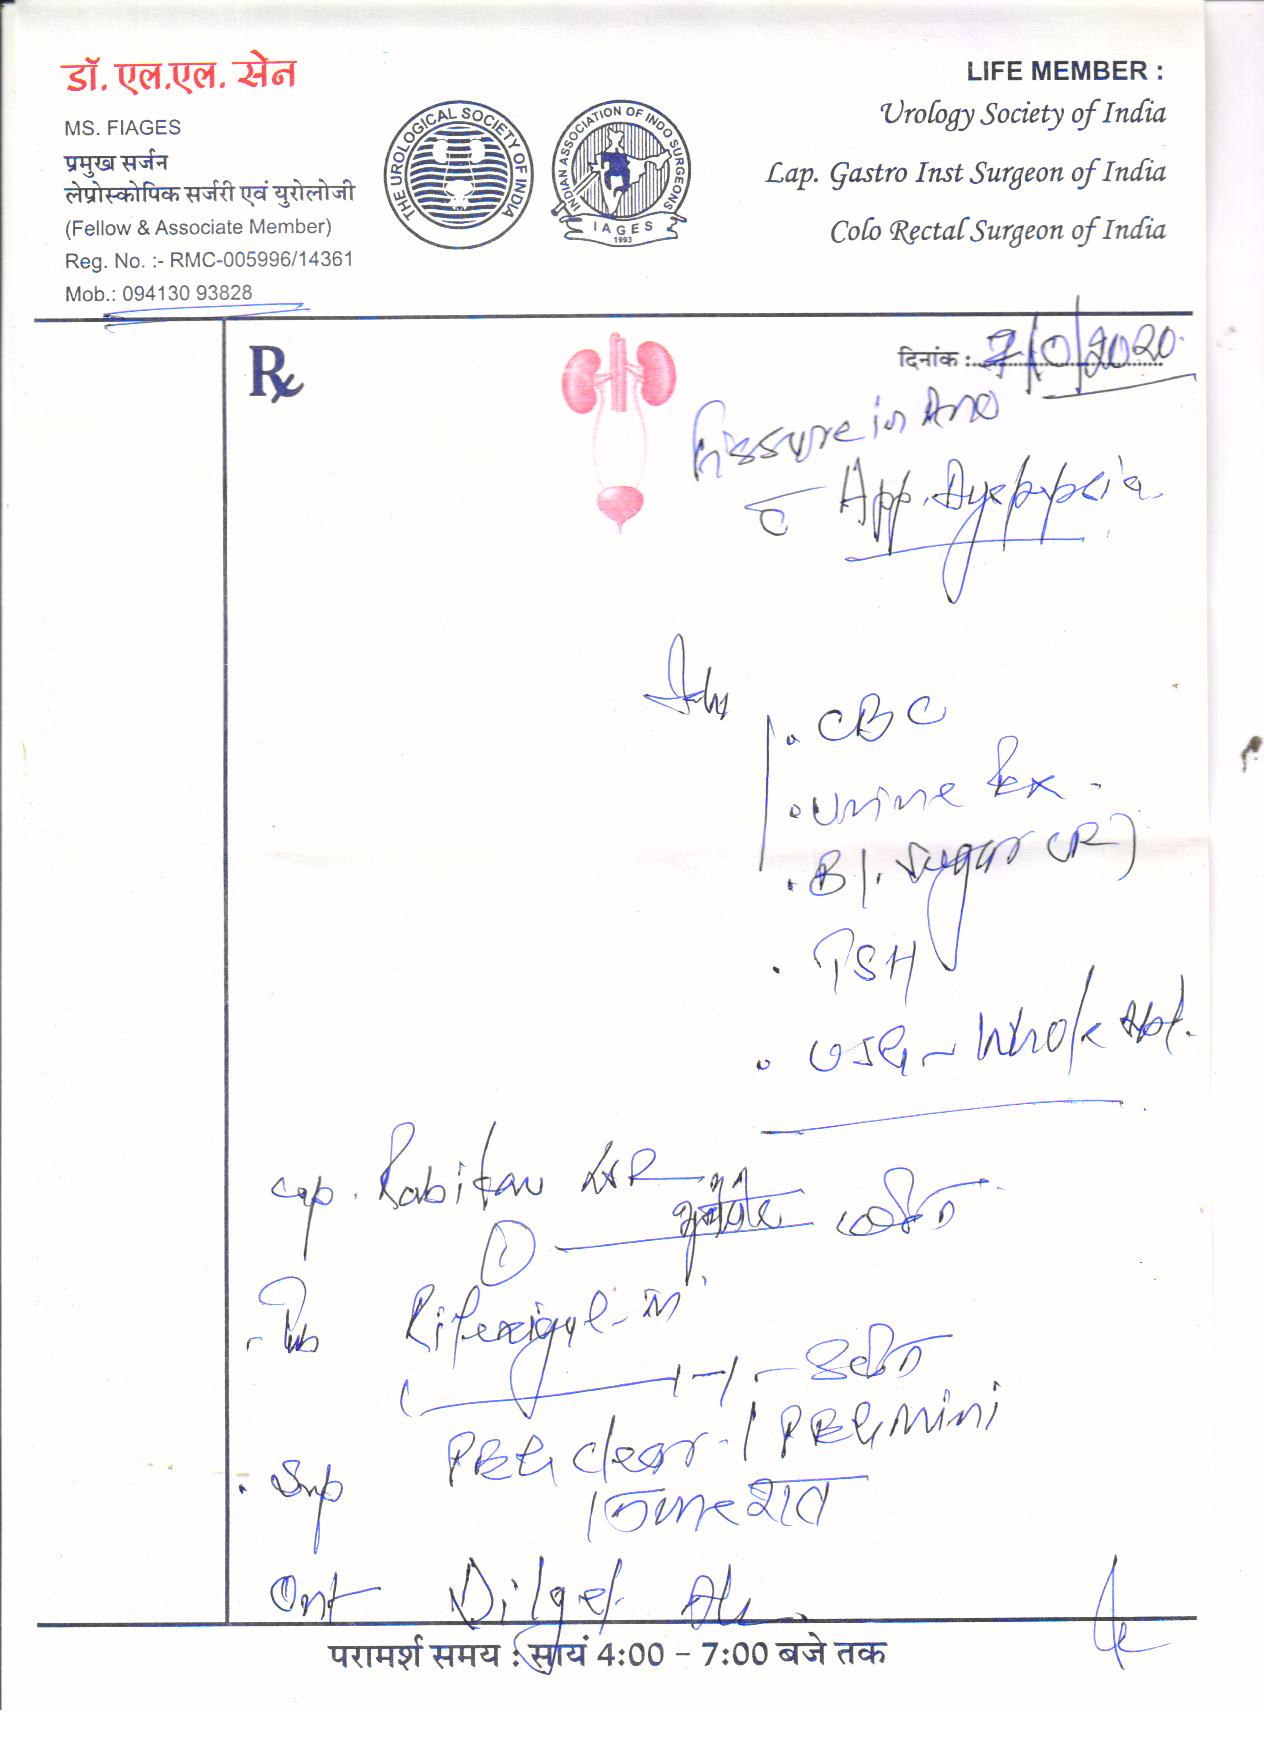 डॉ. एल.एल. सेन
MS. FIAGES
प्रमुख सर्जन
लेप्रोस्कोपिक सर्जरी एवं युरोलोजी
(Fellow & Associate Member)
Reg. No. :- RMC-005996/14361
Mob.: 094130 93828
THE UROLOGICAL SOCIETY OF INDIA
INDIAN ASSOCIATION OF INDO SURGEONS
IAGES
1993
LIFE MEMBER :
Urology Society of India
Lap. Gastro Inst Surgeon of India
Colo Rectal Surgeon of India
Rx
दिनांक : 2020
Fissure in Ano
App. Dyspepsia
CBC
Urine Ex.
Bl. Sugar (R)
TSH
USG - Whole Abd.
Cap. DSR
1
Tab
Syp PEG clear / PEG Mini
Oint
परामर्श समय : सायं 4:00 – 7:00 बजे तक